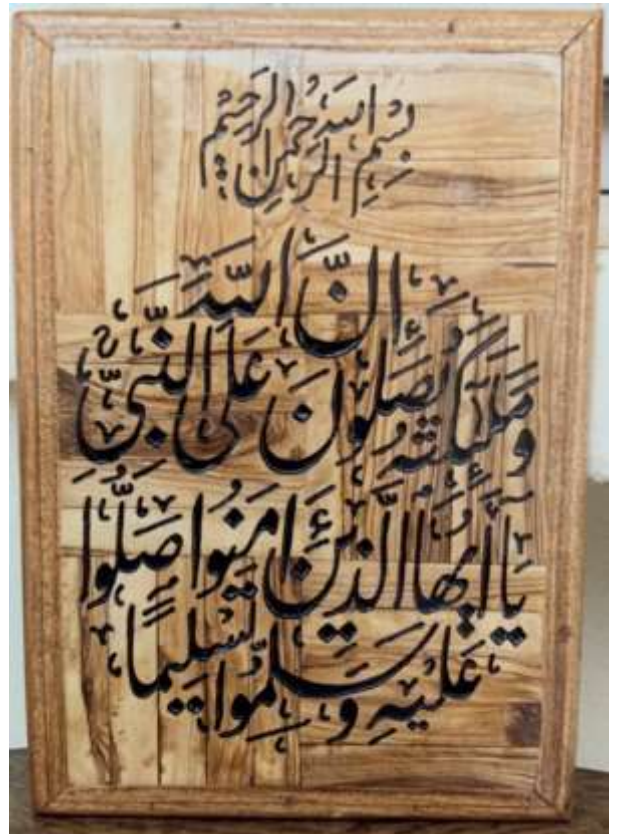 بِسْمِ اللهِ الرَّحْمٰنِ الرَّحِيْمِ
اِنَّ اللّٰهَ
وَمَلٰٓئِكَتَهُ يُصَلُّونَ عَلَى النَّبِيِّ
يَآ أَيُّهَا الَّذِينَ ءَامَنُوا صَلُّوا
عَلَيْهِ وَسَلِّمُوا تَسْلِيمًا